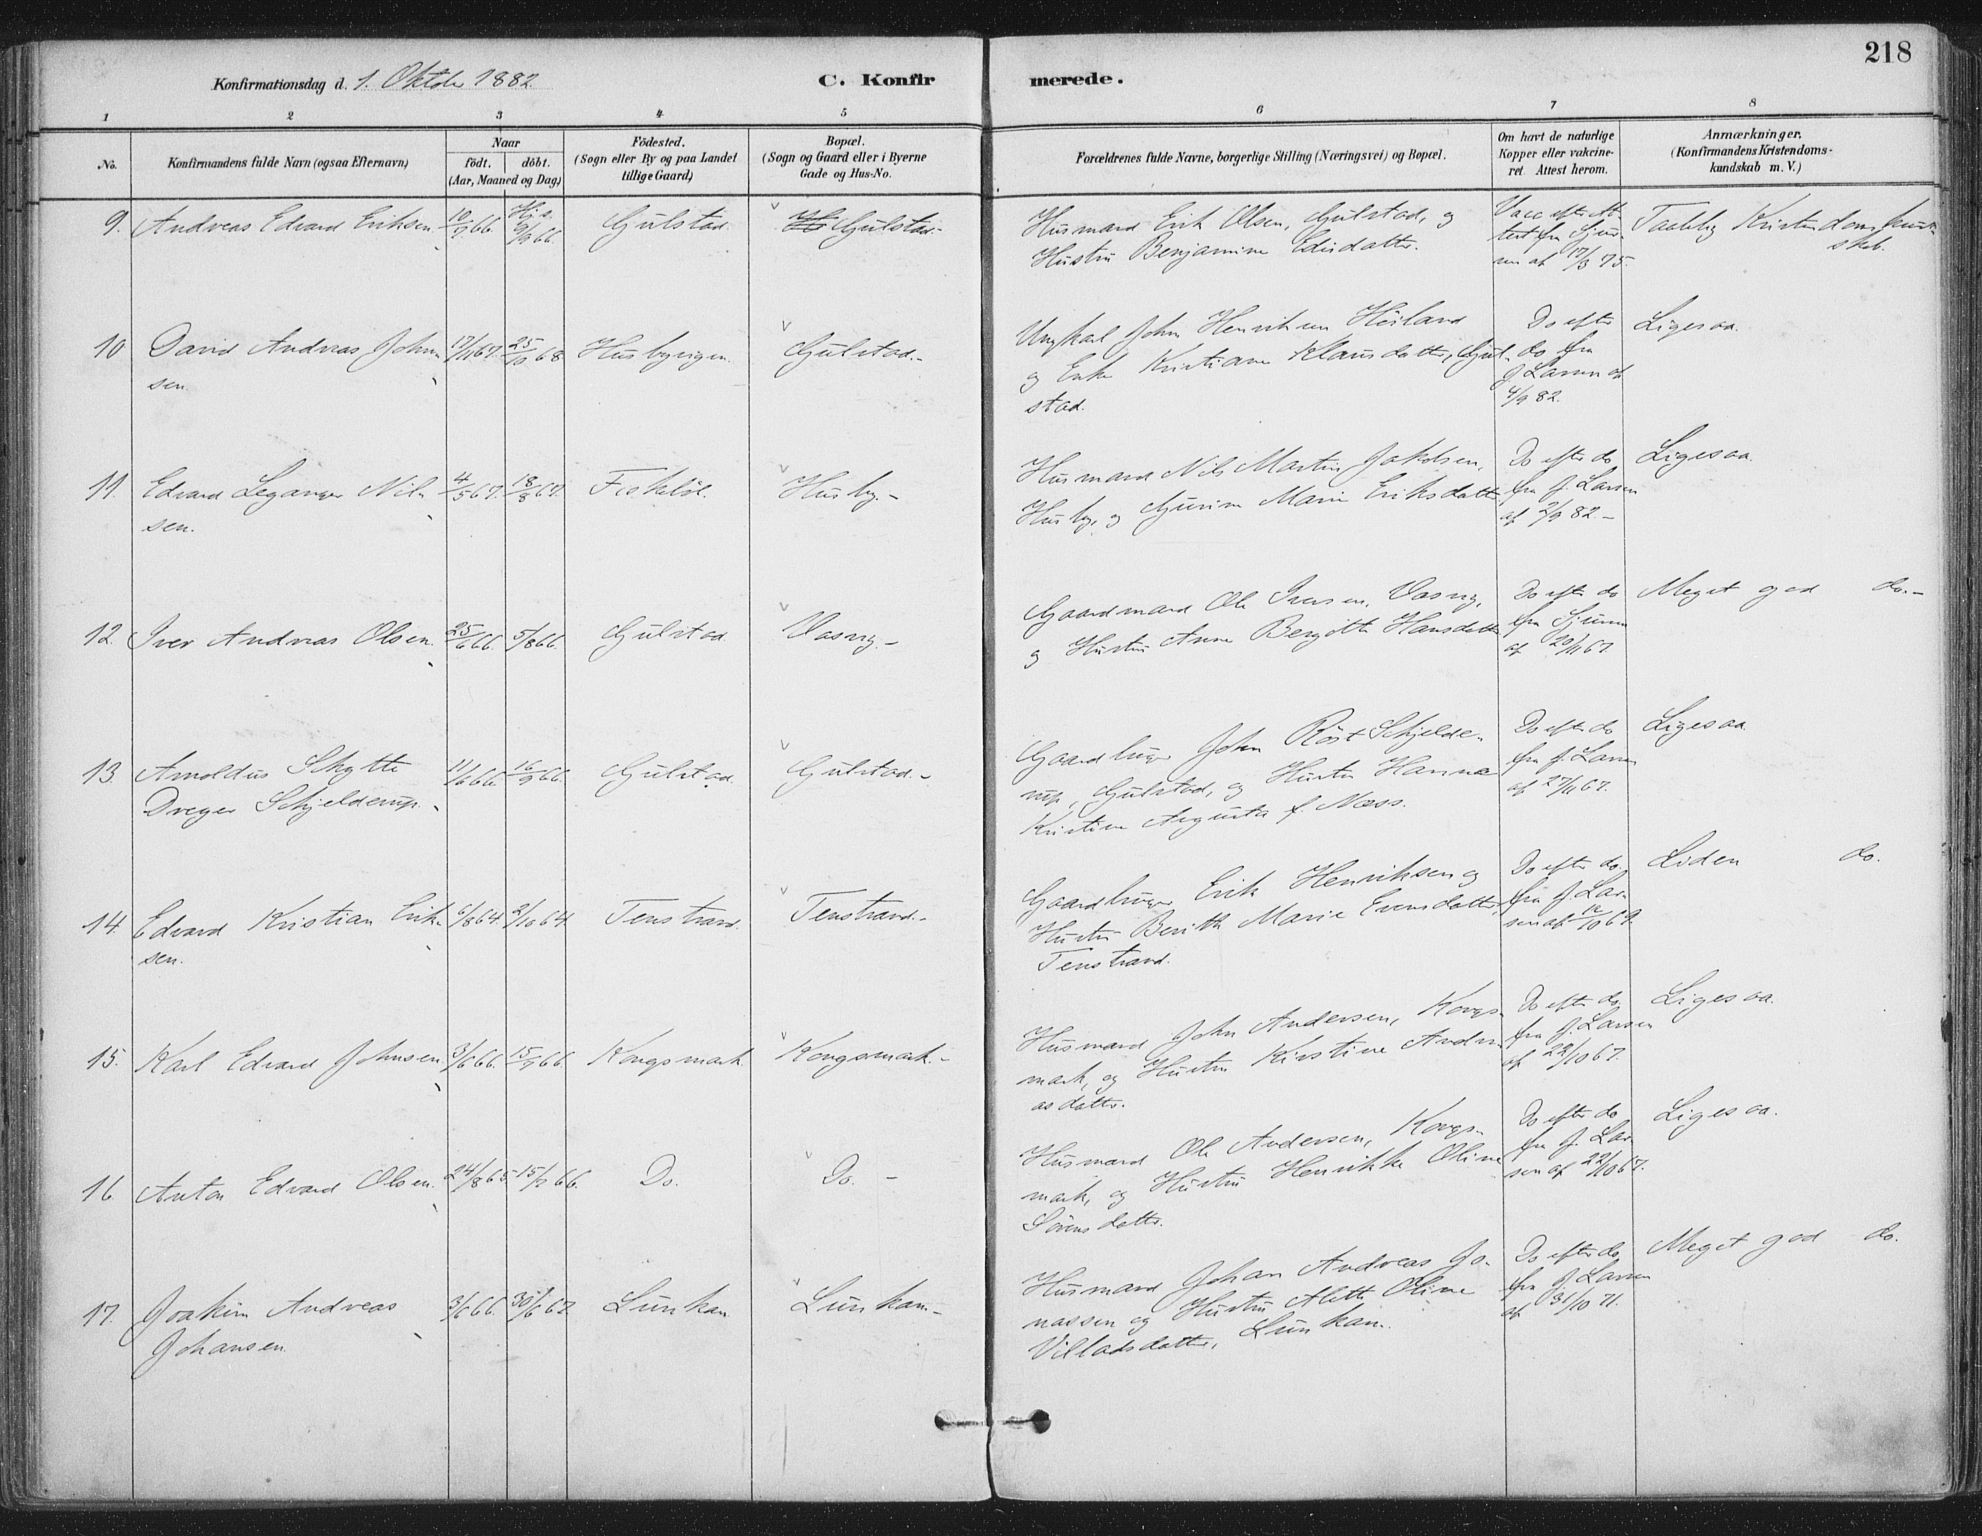 218
Konfirmationsdag d. 1. Oktobr 1882.
C. Konfirmerede.
1 2 3 4 5 6 7 8
No.
Konfirmandens fulde Navn (ogsaa Efternavn)
Naar
födt. döbt.
(Aar, Maaned og Dag)
Födested.
(Sogn eller By og paa Landet
tillige Gaard)
Bopæl.
(Sogn og Gaard eller i Byerne
Gade og Hus-No.
Forældrenes fulde Navne, borgerlige Stilling (Næringsvei) og Bopæl.
Om havt de naturlige
Kopper eller vakcine-
ret Attest herom.
Anmærkninger.
(Konfirmandens Kristendoms-
kundskab m. V.)
9. Andreas Edvard Eriksen. 10/7 66. Hj. d. 9/9 66. Gjulstad. Gjulstad.-
Husmand Erik Olsen, Gjulstad, og
Hustru Benjamine Edisdatter.
Vacc efter At-
test fra
af 17/3 75.
Taalelig Kristendomskund-
skab.
10 David Andreas John-
sen. 17/11 67. 25/10 68 Husbyvigen. Gjulstad.-
Ungkarl John Henriksen Höiland
og Enke Kristiane Klausdatter, Gjul-
stad.
Do efter
do fra
J. Larsen af
4/9 82.
Ligesaa.
11. Edvard Leganger Nil-
sen. 4/5 67. 18/8 67. Fiskelöl. Husby.-
Husmand Nils Martin Jakobsen,
Husby, og Gurine Marie Eriksdatter
Do efter do
fra J. Larsen
af 2/9 82 -
Ligesaa.
12. Iver Andreas Olsen. 25/6 66. 5/8 66. Gjulstad. Vasvig.-
Gaardmand Ole Iversen, Vasvig,
og Hustru Anne Bergitte Hansdatter
Do efter do
fra
af 20/11 67.
Meget god do.-
13 Arnoldus Schytte
Dreyer Schjelderup. 11/6 66. 16/9 66. Gjulstad. Gjulstad.-
Gaardbruger John Röst Schjelde-
rup, Gjulstad, og Hustru Hanna
Kristine Augusta f. Næss.
Do efter do
fra J. Larsen
af 27/11 67.
Ligesaa
14. Edvard Kristian Erik-
sen. 6/8 64. 2/10 64. Tenstrand. Tenstrand.-
Gaardbruger Erik Henriksen og
Hustru Berith Marie Evensdatter,
Tenstrand.
Do efter do.
fra J. Lar-
sen af 12/10 69.
Liden do.
15. Karl Edvard Johnsen 3/6 66. 15/9 66. Kongsmark. Kongsmark.-
Husmand John Andersen, Kongs-
mark, og Hustru Kirstine Andre-
asdatter.
Do efter do.
fra J. Larsen
af 22/10 67.
Ligesaa.
16. Anton Edvard Olsen. 24/8 65. 15/7 66. Do. Do. -
Husmand Ole Andersen, Kongs-
mark, og Hustru Henrikke Oline
Sörensdatter.
Do efter do
fra J. Lar-
sen af 22/10 67.
Ligesaa.
17. Joakim Andreas
Johansen. 3/6 66. 30/6 67. Lunkan. Lunkan-
Husmand Johan Andreas Jo-
nassen og Hustru Aleth Oline
Villadsdatter, Lunkan.
Do efter do
fra J. Larsen
af 31/10 71.
Meget god do.